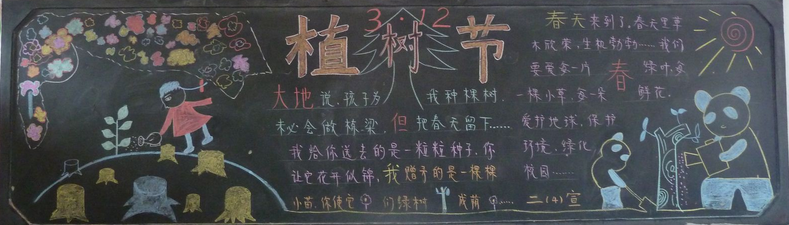 3.12
植树节
大地说,孩子为我种棵树.
秘会做栋梁,但把春天留下......
我给你送去的是一粒粒种子,你
让它花开似锦,我赠予的是一棵棵
小苗,你使它们绿树成荫......
春天来到了,春天里草
木欣荣,生机勃勃......我们
要爱每一片绿叶,每
一棵小草,每一朵鲜花.
春
爱护地球,保护
环境,绿化
校园......
二(4)宣